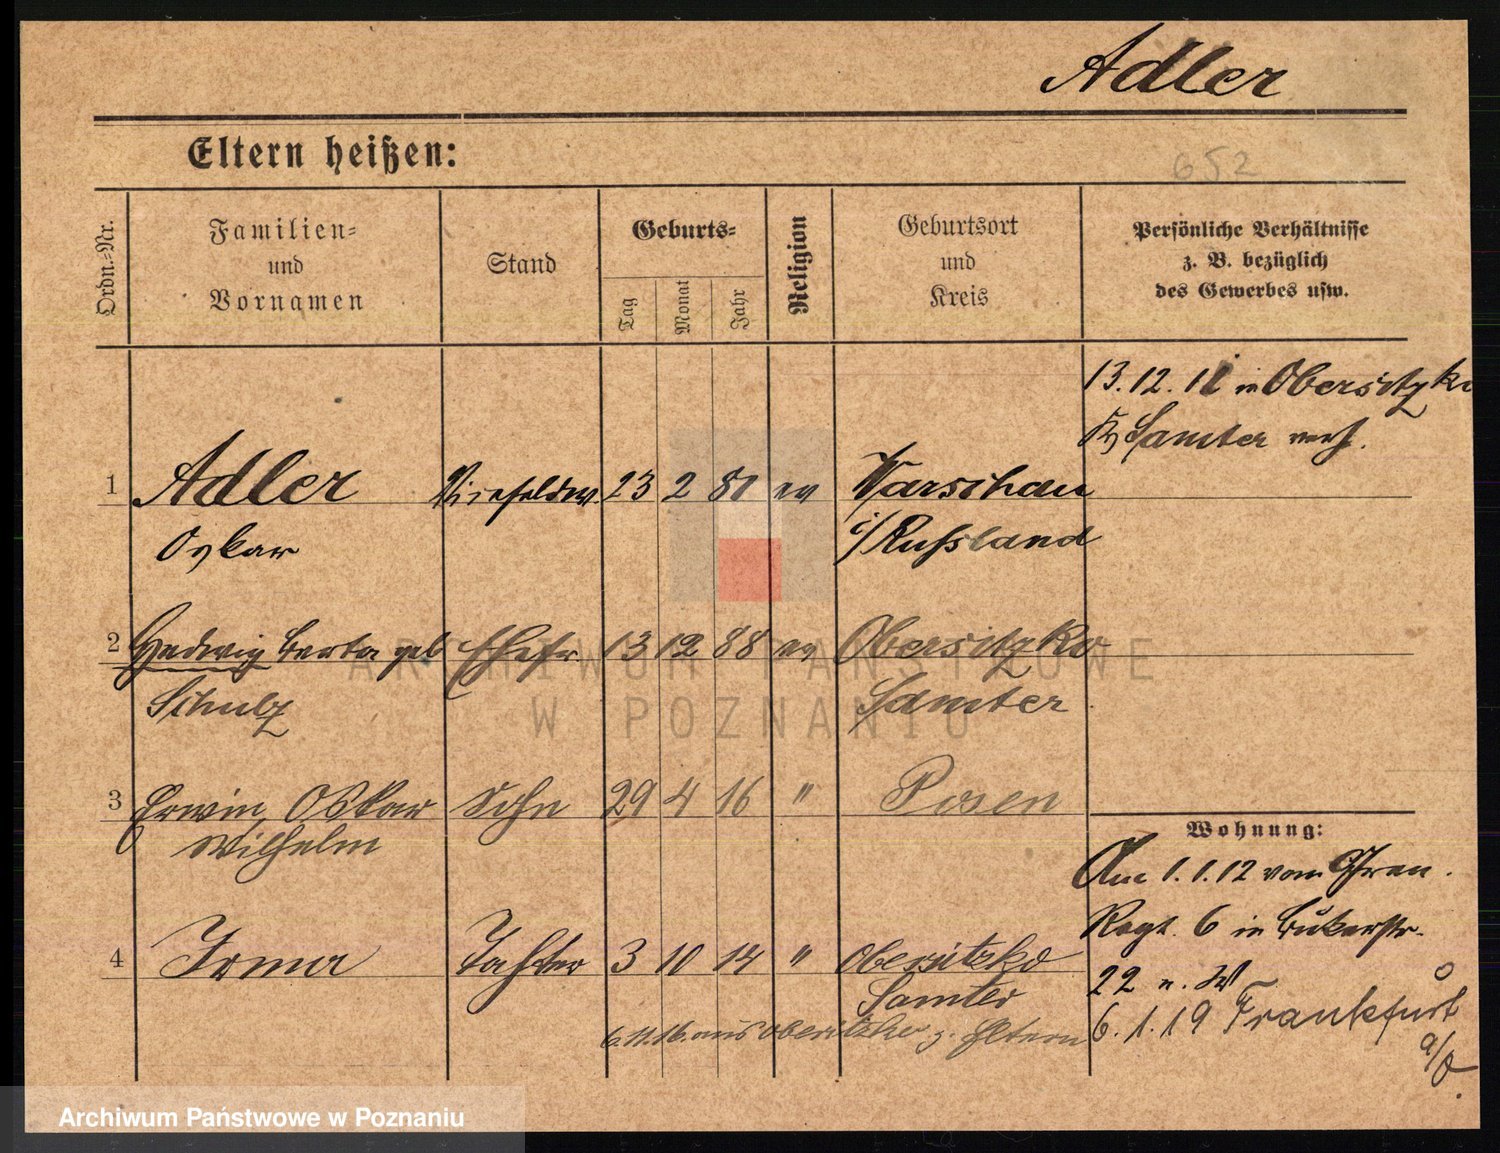 Adler
Eltern heißen:
652
Ordn.-Nr.
Familien-
und
Vornamen
Stand
Geburts-
Tag
Monat
Jahr
Religion
Geburtsort
und
Kreis
Persönliche Verhältnisse
z. B. bezüglich
des Gewerbes usw.
13.12.11 in Obersitzko
Kr Samter verh.
1 Adler Vizefeldw. 23 2 81 ev Warschau
Oskar i/Russland
2 Hedwig Berta geb Ehefr 13 12 88 ev Obersitzko
Schulz Samter
3 Erwin, Oskar Sohn 29 4 16 " Posen
Wilhelm
Wohnung:
Am 1.1.12 vom Gren.
Regt. 6 in Bukerstr.
4 Irma Tochter 3 10 14 " Obersitzko
22
Samter
6.11.16. aus Obersitzko z. Eltern
6.1.19 Frankfurt
a/O
ARCHIWUM PAŃSTWOWE
W POZNANIU
Archiwum Państwowe w Poznaniu